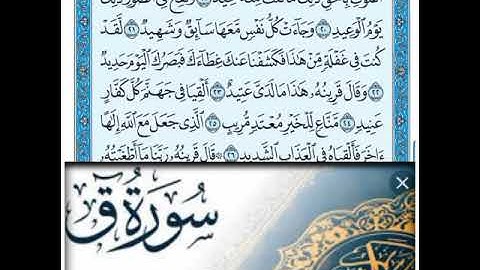 يَوْمُ ٱلْوَعِيدِ ٢٠ وَجَآءَتْ كُلُّ نَفْسٍ مَّعَهَا سَآئِقٌ وَشَهِيدٌ ٢١ لَّقَدْ
كُنتَ فِى غَفْلَةٍ مِّنْ هَٰذَا فَكَشَفْنَا عَنكَ غِطَآءَكَ فَبَصَرُكَ ٱلْيَوْمَ حَدِيدٌ
٢٢ وَقَالَ قَرِينُهُۥ هَٰذَا مَا لَدَىَّ عَتِيدٌ ٢٣ أَلْقِيَا فِى جَهَنَّمَ كُلَّ كَفَّارٍ
عَنِيدٍ ٢٤ مَّنَّاعٍ لِّلْخَيْرِ مُعْتَدٍ مُّرِيبٍ ٢٥ ٱلَّذِى جَعَلَ مَعَ ٱللَّهِ إِلَٰهًا
ءَاخَرَ فَأَلْقِيَاهُ فِى ٱلْعَذَابِ ٱلشَّدِيدِ ٢٦ قَالَ قَرِينُهُۥ رَبَّنَا مَآ أَطْغَيْتُهُۥ
سُورَةُ ق